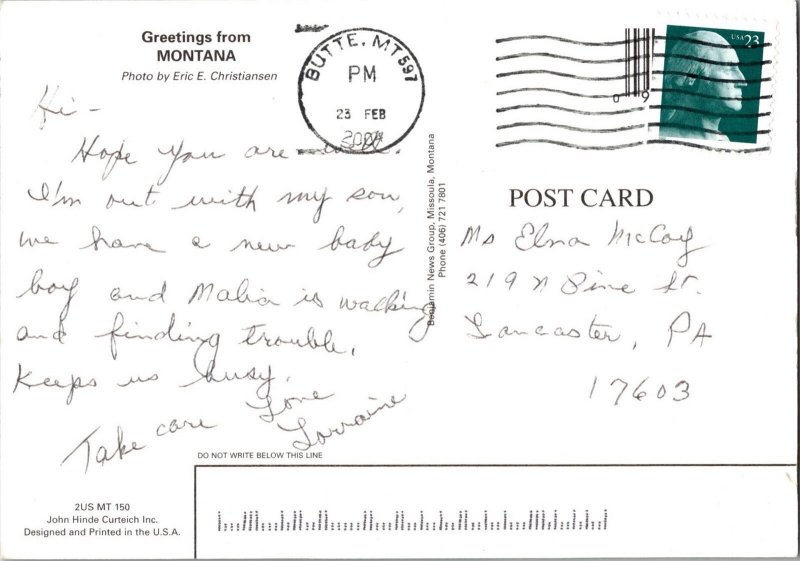 Greetings from
MONTANA
Photo by Eric E. Christiansen
BUTTE, MT 597
PM
23 FEB
USA 23
0 9
Hi -
Hope you are
I'm out with my son,
we have a new baby
boy and Malia is walking
and finding trouble,
Keeps us busy.
Take care Love
Lorraine
Benjamin News Group, Missoula, Montana
Phone (406) 721 7801
POST CARD
Ms Elna McCoy
219 N Pine St.
Lancaster, PA
17603
DO NOT WRITE BELOW THIS LINE
2US MT 150
John Hinde Curteich Inc.
Designed and Printed in the U.S.A.